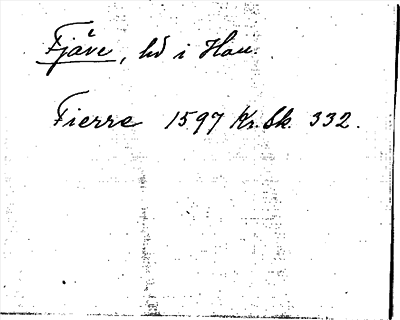 Fjåve, hd i Hau.
Fierre 1597 Kr. Sk. 332.